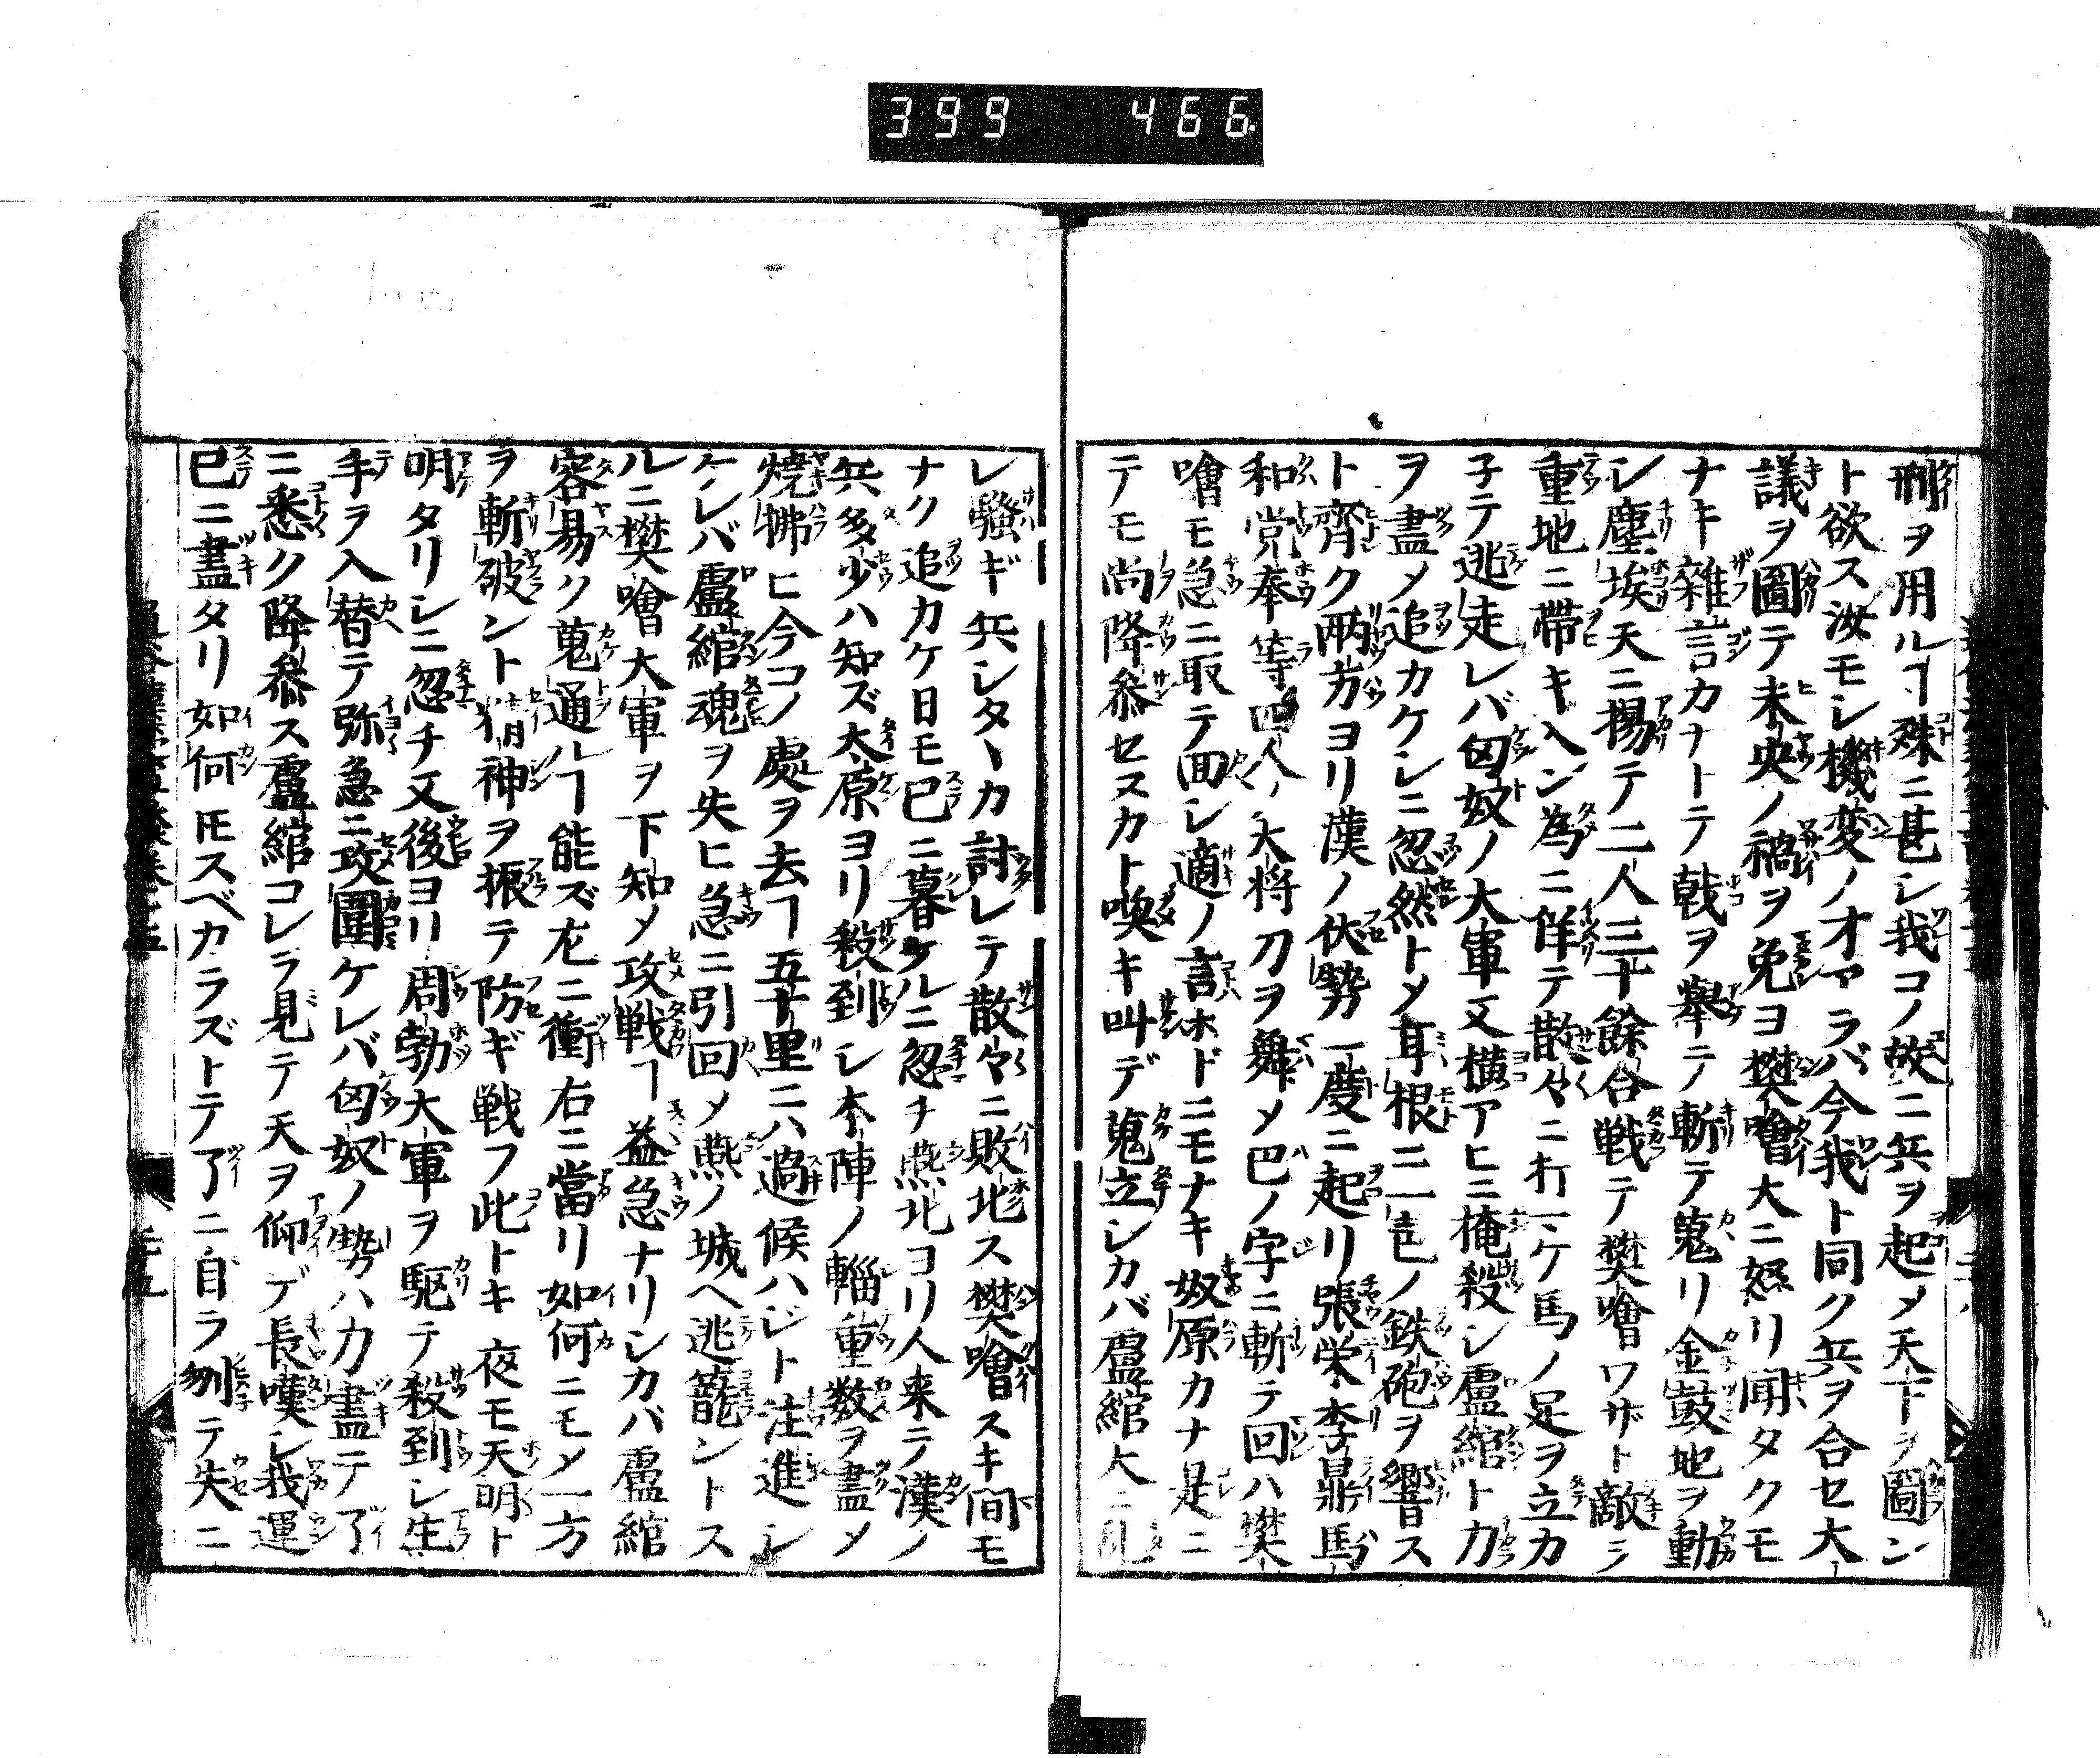 399 466
刑ヲ用ルヿ殊ニ甚シ我コノ故ニ兵ヲ起メ天下ヲ圖ン
ト欲ス汝モシ機変ノオアラバ今我ト同ク兵ヲ合セ大
議ヲ圖テ未央ノ禍ヲ免ヨ樊噲大ニ怒リ聞タクモ
ナキ雑言カナトテ戟ヲ舉テ斬テ蒐リ金鼓地ヲ動
シ塵埃天ニ揚テ二人三十餘合戦テ樊噲ワザト敵ヲ
重地ニ帶キ入ン為ニ佯テ散々ニ打ケ馬ノ足ヲ立カ
子テ逃走レバ匈奴ノ大軍又横アヒニ掩殺シ盧綰ト力
ヲ盡メ追カケシニ忽然トメ耳根ニ一声ノ鉄砲ヲ響ス
ト齊ク兩方ヨリ漢ノ伏勢一度ニ起リ張栄李鼎馬
和党奉等四人ノ大将刀ヲ舞メ巴ノ字ニ斬テ回ハ樊
噲モ急ニ取テ回シ適ノ言ホドニモナキ奴原カナ是ニ
テモ尚降参セスカト喚キ叫デ蒐立シカバ盧綰大ニ乱
レ騒ギ兵シタヽカ討レテ散々ニ敗北ス樊噲スキ間モ
ナク追カケ日モ已ニ暮ケルニ忽チ燕北ヨリ人来テ漢ノ
兵多少ハ知ズ太原ヨリ殺到シ本陣ノ輜重数ヲ盡メ
焼拂ヒ今コノ處ヲ去ヿ五十里ニハ過候ハジト注進シ
ケレバ盧綰魂ヲ失ヒ急ニ引回メ燕ノ城ヘ逃籠ントス
ルニ樊噲大軍ヲ下知メ攻戦ヿ益急ナリシカバ盧綰
容易ク蒐通ルヿ能ズ左ニ衝右ニ當リ如何ニモメ一方
ヲ斬破ント精神ヲ振テ防ギ戦フ此トキ夜モ天明ト
明タリシニ忽チ又後ヨリ周勃大軍ヲ駆テ殺到シ生
手ヲ入替テ弥急ニ攻圍ケレバ匈奴ノ勢ハ力盡テ了
ニ悉ク降参ス盧綰コレラ見テ天ヲ仰デ長嘆シ我運
已ニ盡タリ如何トモスベカラズトテ了ニ自ラ刎テ失ニ